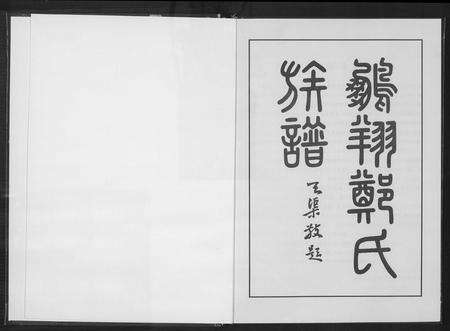 鵬翔鄭氏
族譜
渠敬題